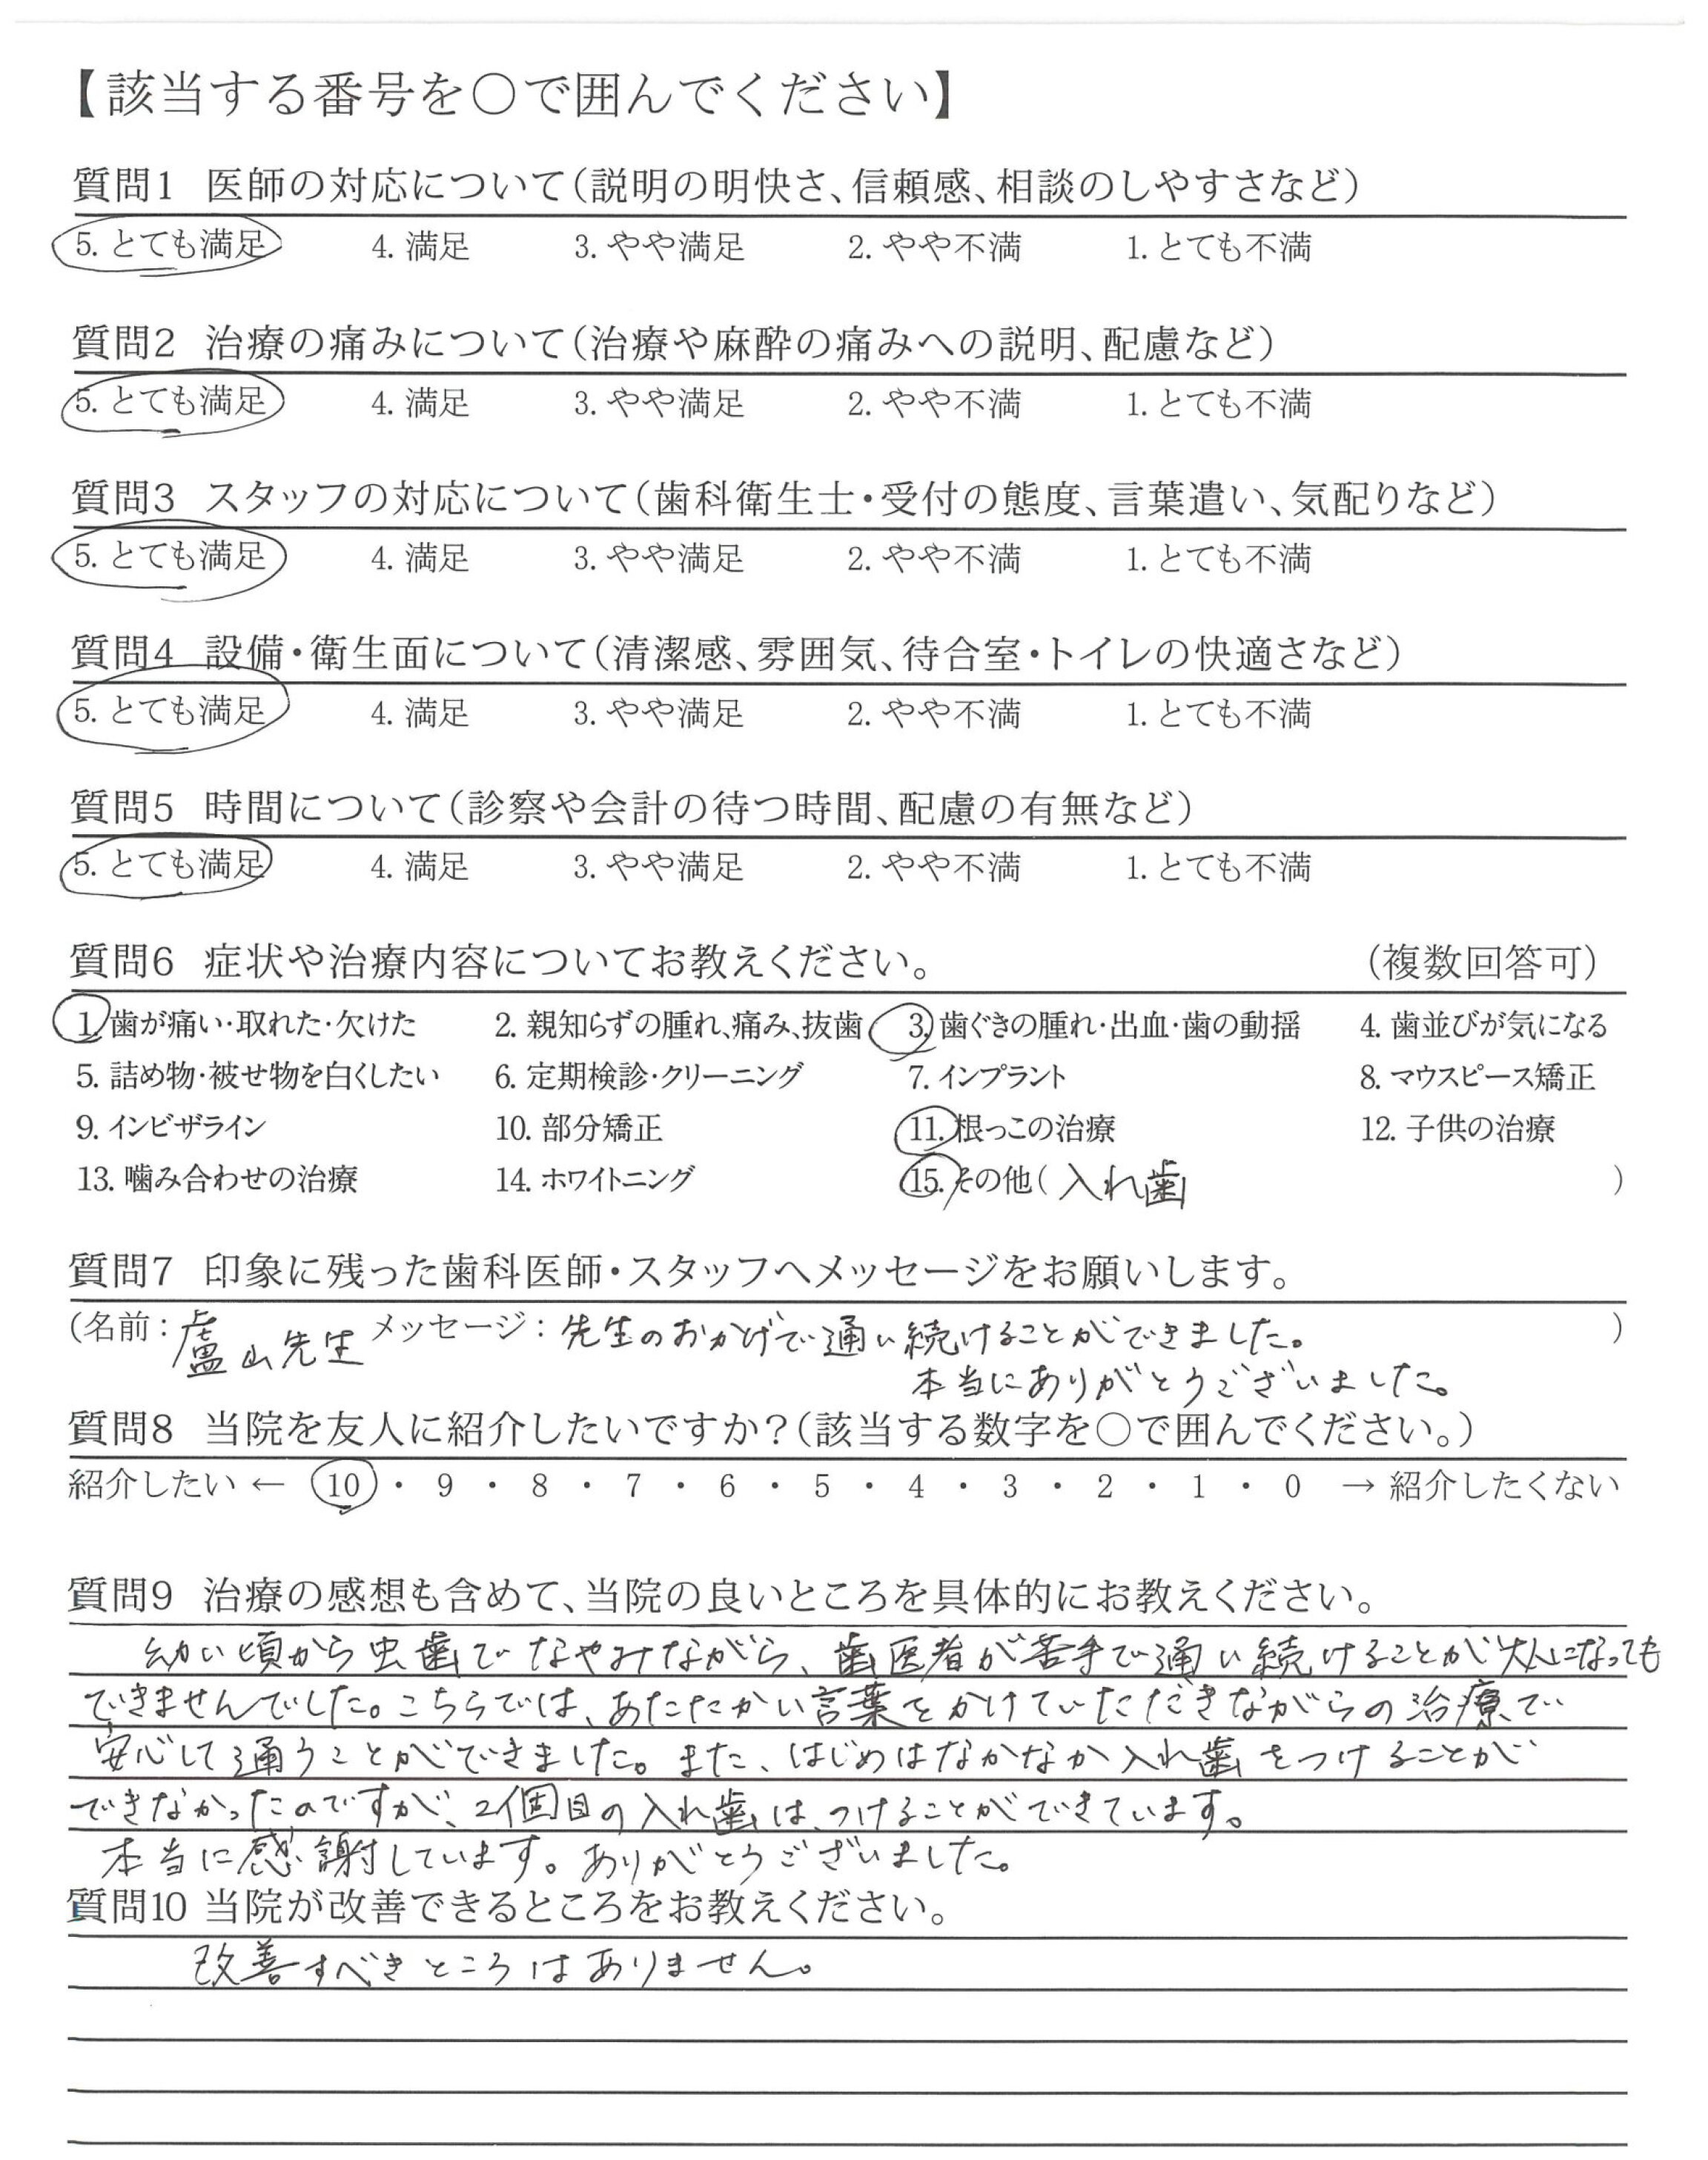 【該当する番号を○で囲んでください】
質問1 医師の対応について(説明の明快さ、信頼感、相談のしやすさなど)
5. とても満足 4. 満足 3. やや満足 2. やや不満 1. とても不満
質問2 治療の痛みについて(治療や麻酔の痛みへの説明、配慮など)
5. とても満足 4. 満足 3. やや満足 2. やや不満 1. とても不満
質問3 スタッフの対応について(歯科衛生士・受付の態度、言葉遣い、気配りなど)
5. とても満足 4. 満足 3. やや満足 2. やや不満 1. とても不満
質問4 設備・衛生面について(清潔感、雰囲気、待合室・トイレの快適さなど)
5. とても満足 4. 満足 3. やや満足 2. やや不満 1. とても不満
質問5 時間について(診察や会計の待つ時間、配慮の有無など)
5. とても満足 4. 満足 3. やや満足 2. やや不満 1. とても不満
質問6 症状や治療内容についてお教えください。 (複数回答可)
1. 歯が痛い・取れた・欠けた 2. 親知らずの腫れ、痛み、抜歯 3. 歯ぐきの腫れ・出血・歯の動揺 4. 歯並びが気になる
5. 詰め物・被せ物を白くしたい 6. 定期検診・クリーニング 7. インプラント 8. マウスピース矯正
9. インビザライン 10. 部分矯正 11. 根っこの治療 12. 子供の治療
13. 噛み合わせの治療 14. ホワイトニング 15. その他( 入れ歯 )
質問7 印象に残った歯科医師・スタッフへメッセージをお願いします。
(名前: 盧山先生 メッセージ: 先生のおかげで通い続けることができました。 )
本当にありがとうございました。
質問8 当院を友人に紹介したいですか?(該当する数字を○で囲んでください。)
紹介したい ← 10 ・ 9 ・ 8 ・ 7 ・ 6 ・ 5 ・ 4 ・ 3 ・ 2 ・ 1 ・ 0 → 紹介したくない
質問9 治療の感想も含めて、当院の良いところを具体的にお教えください。
幼い頃から虫歯でなやみながら、歯医者が苦手で通い続けることが大人になっても
できませんでした。こちらでは、あたたかい言葉をかけていただきながらの治療で
安心して通うことができました。また、はじめはなかなか入れ歯をつけることが
できなかったのですが、2個目の入れ歯は、つけることができています。
本当に感謝しています。ありがとうございました。
質問10 当院が改善できるところをお教えください。
改善すべきところはありません。